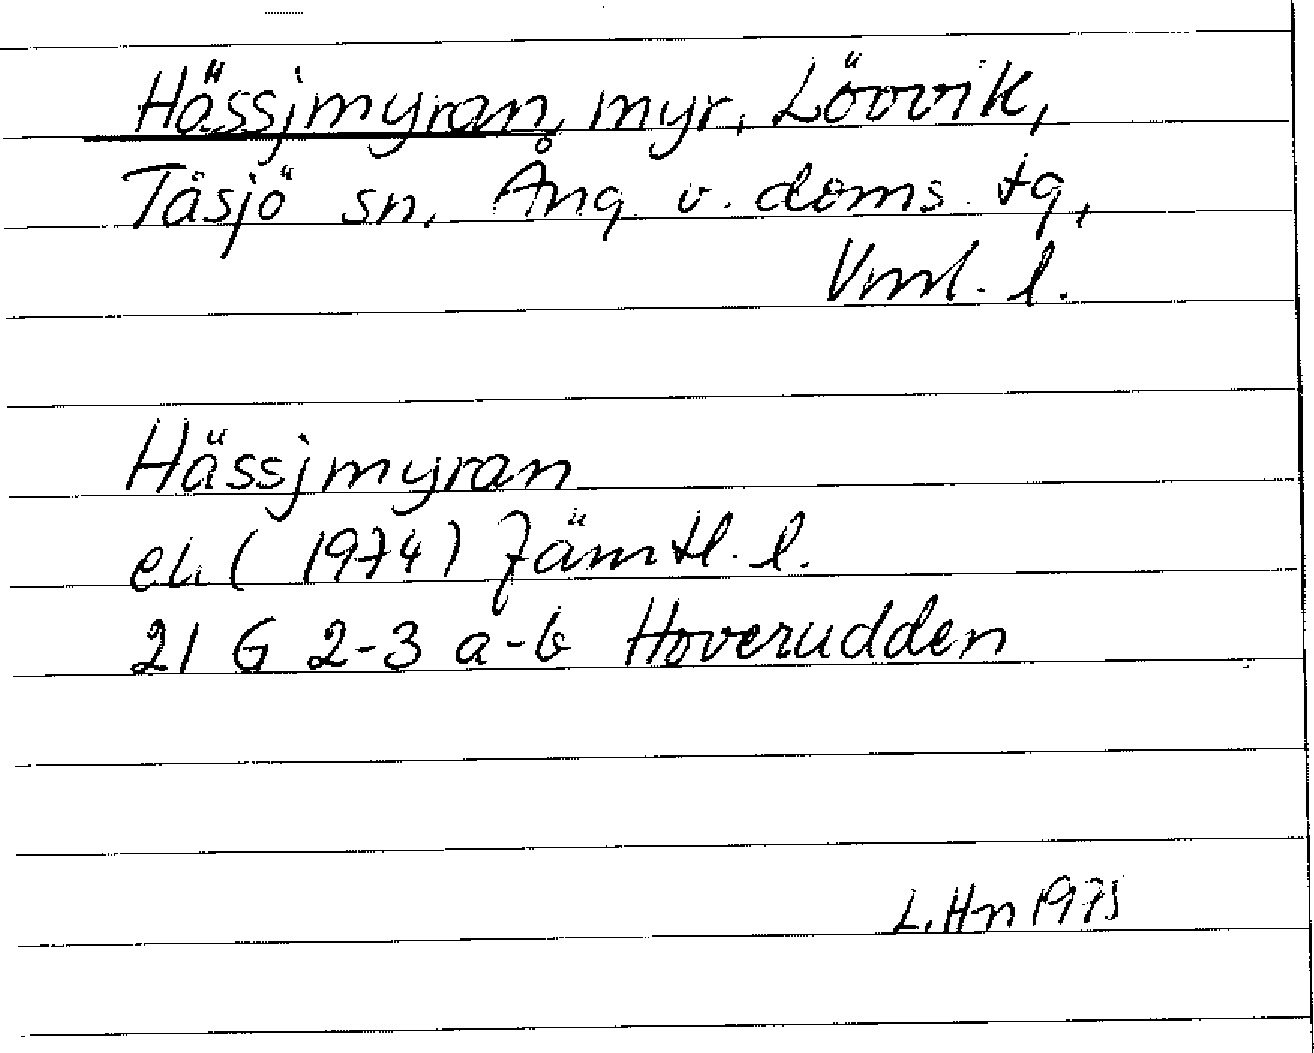 Hässjmyran, myr, Lövvik,
Tåsjö sn, Ång. v. doms. tg,
Vml. l.
Hässjmyran
ek. (1974) Jämtl. l.
21 G 2-3 a-b Hoverudden
L. Hn 1975